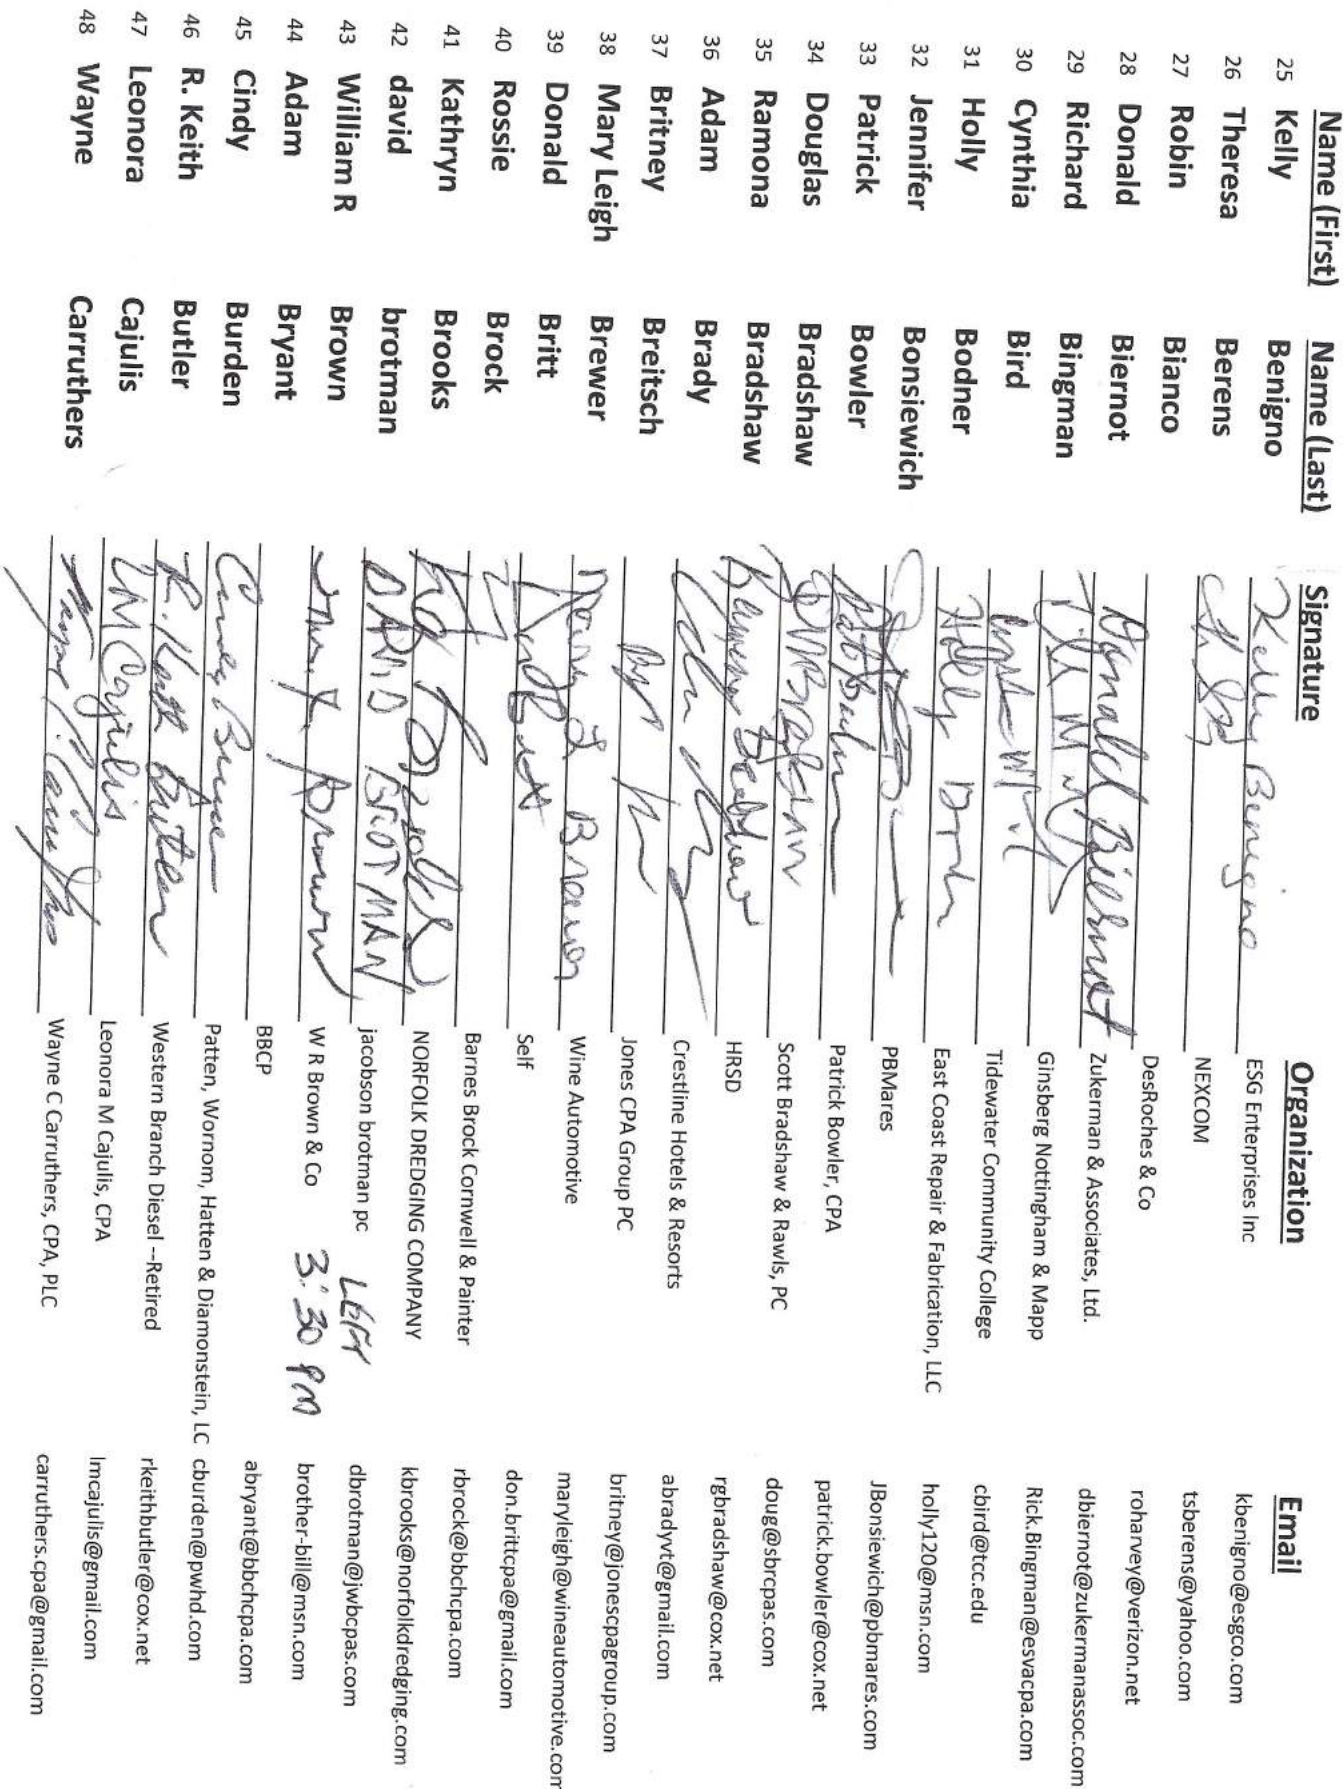 Name (First) Name (Last) Signature Organization Email
25 Kelly Benigno Kelly Benigno ESG Enterprises Inc kbenigno@esgco.com
26 Theresa Berens NEXCOM tsberens@yahoo.com
27 Robin Bianco DesRoches & Co roharvey@verizon.net
28 Donald Biernot Donald Biernot Zukerman & Associates, Ltd. dbiernot@zukermanassoc.com
29 Richard Bingman Ginsberg Nottingham & Mapp Rick.Bingman@esvacpa.com
30 Cynthia Bird Tidewater Community College cbird@tcc.edu
31 Holly Bodner Holly East Coast Repair & Fabrication, LLC holly120@msn.com
32 Jennifer Bonsiewich PBMares JBonsiewich@pbmares.com
33 Patrick Bowler Patrick Bowler, CPA patrick.bowler@cox.net
34 Douglas Bradshaw Scott Bradshaw & Rawls, PC doug@sbrcpas.com
35 Ramona Bradshaw HRSD rgbradshaw@cox.net
36 Adam Brady Crestline Hotels & Resorts abradyvt@gmail.com
37 Britney Breitsch Jones CPA Group PC britney@jonescpagroup.com
38 Mary Leigh Brewer Brewer Wine Automotive maryleigh@wineautomotive.com
39 Donald Britt Self don.brittcpa@gmail.com
40 Rossie Brock Barnes Brock Cornwell & Painter rbrock@bbchcpa.com
41 Kathryn Brooks NORFOLK DREDGING COMPANY kbrooks@norfolkdredging.com
42 david brotman DAVID BROTMAN jacobson brotman pc LEFT dbrotman@jwbcpas.com
43 William R Brown Brown W R Brown & Co 3:30 PM brother-bill@msn.com
44 Adam Bryant BBCP abryant@bbchcpa.com
45 Cindy Burden Patten, Wornom, Hatten & Diamonstein, LC cburden@pwhd.com
46 R. Keith Butler R. Keith Butler Western Branch Diesel --Retired rkeithbutler@cox.net
47 Leonora Cajulis LM Cajulis Leonora M Cajulis, CPA lmcajulis@gmail.com
48 Wayne Carruthers Wayne C Carruthers, CPA, PLC carruthers.cpa@gmail.com